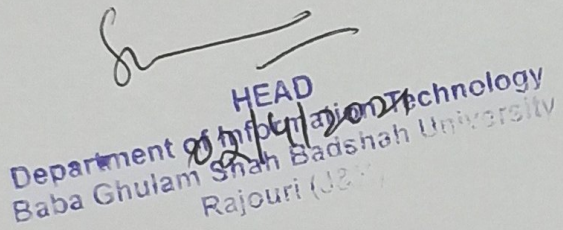 HEAD
Department of Information Technology
Baba Ghulam Shah Badshah University
Rajouri (J&